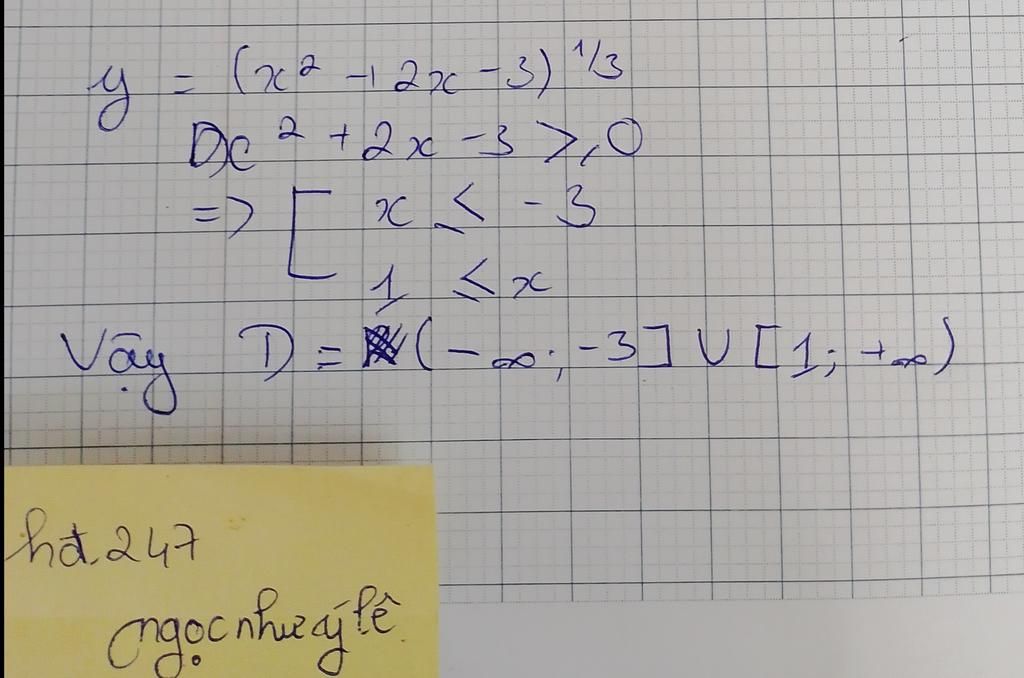 y = (x² + 2x - 3)^1/3
Dx² + 2x - 3 ≥ 0
=> [ x ≤ -3
1 ≤ x
Vậy D = (-∞; -3] ∪ [1; +∞)
hđ.247
ngọc như ý lê